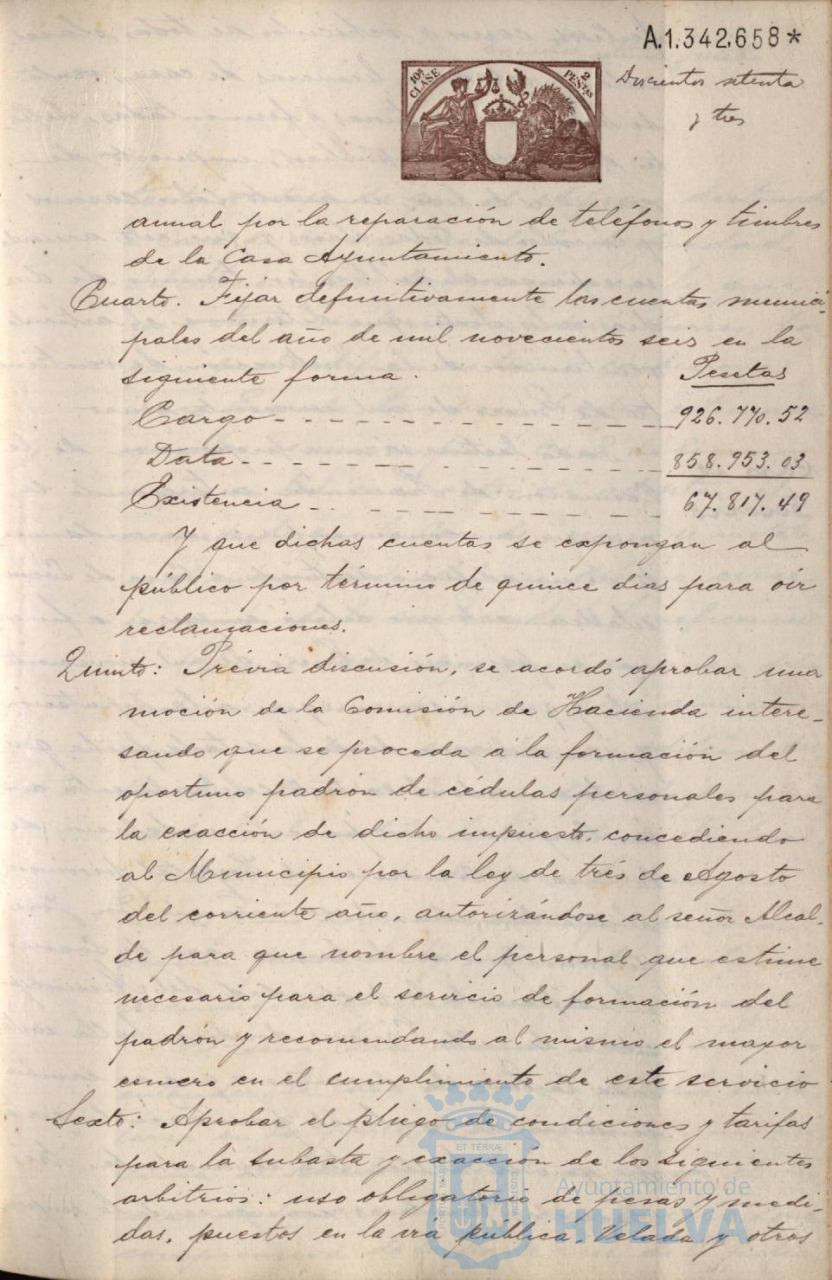 A.1.342.658*
10ª CLASE
2 PESTAS
Doscientos setenta
y tres
anual por la reparación de teléfonos y timbres
de la Casa Ayuntamiento.
Cuarto. Fijar definitivamente las cuentas munici-
pales del año de mil novecientos seis en la
siguiente forma.
Pesetas
Cargo - - - - - - - - - - - 926.770.52
Data - - - - - - - - - - - 858.953.03
Existencia - - - - - - - - - 67.817.49
Y que dichas cuentas se expongan al
público por término de quince dias para oir
reclamaciones.
Quinto: Prévia discusión, se acordó aprobar una
moción de la Comisión de Hacienda intere-
sando que se proceda á la formación del
oportuno padrón de cédulas personales para
la exacción de dicho impuesto, concediendo
al Municipio por la ley de trés de Agosto
del corriente año, autorizándose al señor Alcal-
de para que nombre el personal que estime
necesario para el servicio de formación del
padrón y recomendando al mismo el mayor
esmero en el cumplimiento de este servicio
Sexto: Aprobar el pliego de condiciones y tarifas
para la subasta y exacción de los siguientes
arbitrios: uso obligatorio de pesas y medi-
das, puestos en la via pública, Velada y otros
ET TERRÆ
Ayuntamiento de
HUELVA